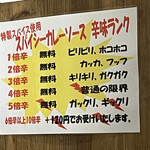 特製スパイス使用
スパイシーカレーソース 辛味ランク
1倍辛 無料 ピリピリ、ホコホコ
2倍辛 無料 カッカ、フッフ
3倍辛 無料 キリキリ、ガクガク
4倍辛 無料 普通の限界
5倍辛 無料 ガックリ、ギックリ
6倍辛以上10倍辛 +120円でお受けいたします。